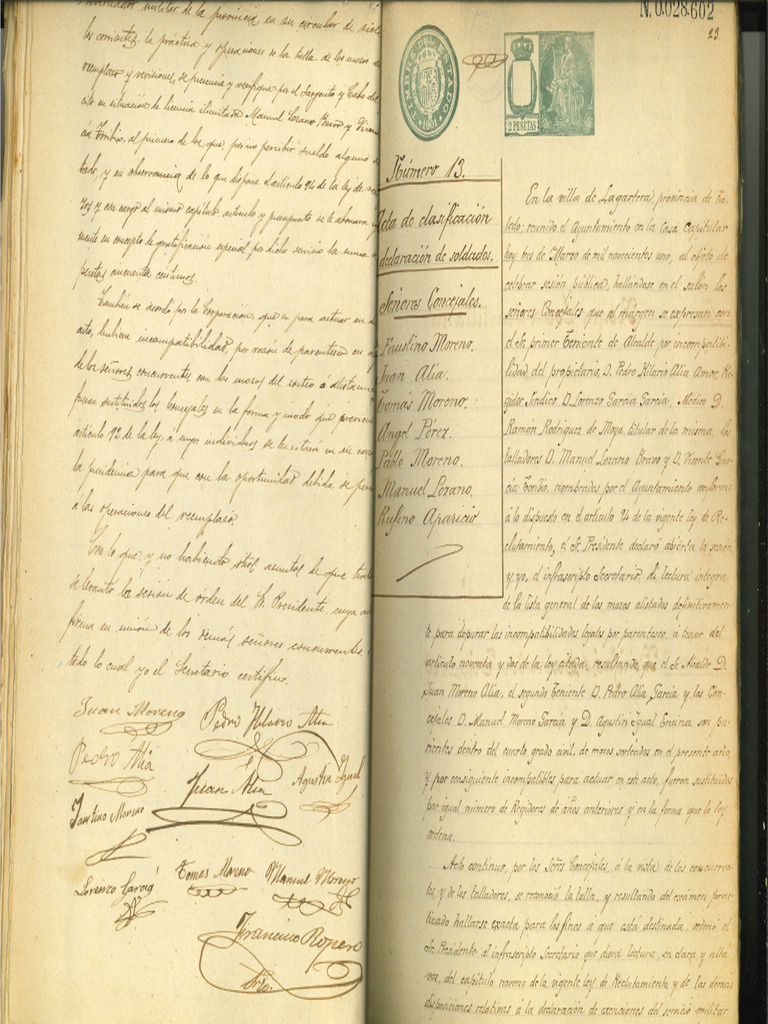 Gobernador militar de la provincia en su circular de
los corrientes, la práctica y operaciones de la talla de los mozos de
reemplazo y revisiones, se presencie y verifique por el Sargento y Cabo del
en situación de licencia ilimitada Manuel Lozano Bravo y
cía Toribio, al primero de los que, por no percibir sueldo alguno
tado, y en observancia de lo que dispone el artículo 94 de la ley de
y con cargo al mismo capítulo artículo y presupuesto se le abonara
mente en concepto de gratificación especial por dicho servicio la suma
pesetas cincuenta centimos.
También se acordó por la Corporación, que si para actuar en
acto, hubiere incompatibilidad, por razón de parentesco en
de los señores concurrentes con los mozos del sorteo ó alistam
fueren sustituidos los Concejales en la forma y modo que previene
artículo 92 de la ley, á cuyos individuos se les citará en
la prudencia para que con la oportunidad debida se
á las operaciones del reemplazo.
Con lo que, y no habiendo otros asuntos de que
se levantó la sesión de orden del Sr. Presidente, cuya
firma en unión de los demás señores concurrentes,
todo lo cual yo el Secretario certifico.
Juan Moreno
Pedro Hilario Alia
Pedro Alia
Juan Alia
Agustin Igual
Faustino Moreno
Lorenzo Garcia
Tomas Moreno
Manuel Moreno
Francisco Ropero
Srio.
N. 0.028.602
23
1901
2 PESETAS
Número 13.
Acta de clasificación
declaración de soldados.
Señores Concejales.
Faustino Moreno.
Juan Alia.
Tomás Moreno.
Angel Pérez.
Pablo Moreno.
Manuel Lozano.
Rufino Aparicio
En la villa de Lagartera, provincia de To-
ledo; reunido el Ayuntamiento en la Casa Capitular
hoy tres de Marzo de mil novecientos uno, al objeto de
celebrar sesión pública, hallándose en el salón los
señores Concejales que al margen se expresan con
el Sr. primer Teniente de Alcalde por incompatibi-
lidad del propietario, D. Pedro Hilario Alia Amor, Re-
gidor Síndico D. Lorenzo García García, Médico D.
Ramón Rodriguez de Moya, titular de la misma, los
talladores D. Manuel Lozano Bravo y D. Vicente Gar-
cía Toribio, nombrados por el Ayuntamiento conforme
á lo dispuesto en el artículo 94 de la vigente ley de Re-
clutamiento, el Sr. Presidente declaró abierta la sesión
y yo, el infrascripto Secretario, di lectura íntegra
de la lista general de los mozos alistados definitivamen-
te para depurar las incompatibilidades legales por parentesco, á tenor del
artículo noventa y dos de la ley citada, resultando, que el Sr. Alcalde D.
Juan Moreno Alia, el segundo Teniente D. Pedro Alia García y los Con-
cejales D. Manuel Moreno García y D. Agustín Igual Encina son pa-
rientes dentro del cuarto grado civil, de mozos sorteados en el presente año,
y por consiguiente incompatibles para actuar en este acto, fueron sustituidos
por igual número de Regidores de años anteriores y en la forma que la ley
ordena.
Acto continuo, por los Señores Concejales, á la vista de los concurren-
tes, y de los talladores, se reconoció la talla, y resultando del exámen prac-
ticado hallarse exacta para los fines á que está destinada, ordenó el
Sr. Presidente al infrascripto Secretario que diera lectura, en clara y alta
voz, del capítulo noveno de la vigente ley de Reclutamiento y de las demas
disposiciones relativas á la declaración de exenciones del servicio militar